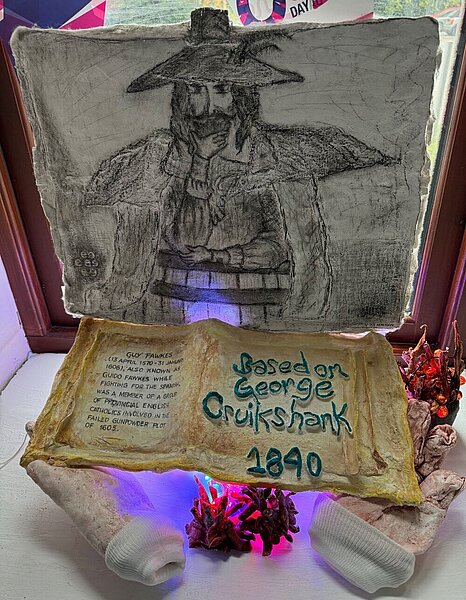 DAY
GUY FAWKES
(13 APRIL 1570 - 31 JANUARY
1606), ALSO KNOWN AS
GUIDO FAWKES WHILE
FIGHTING FOR THE SPANISH,
WAS A MEMBER OF A GROUP
OF PROVINCIAL ENGLISH
CATHOLICS INVOLVED IN THE
FAILED GUNPOWDER PLOT
OF 1605.
Based on
George
Cruikshank
1840